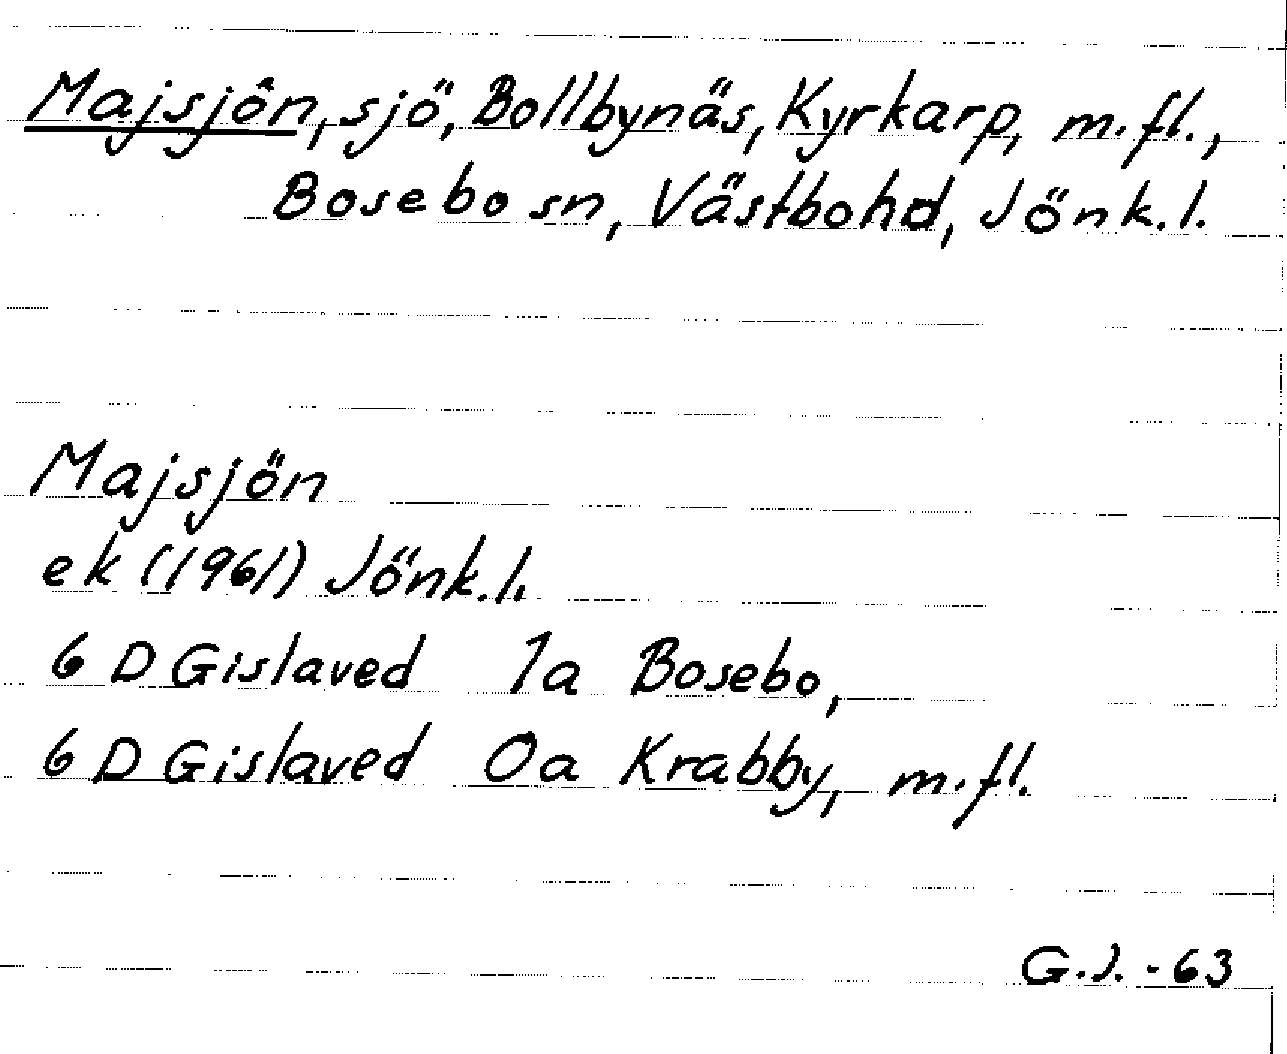 Majsjön, sjö, Bollbynäs, Kyrkarp, m.fl.,
Bosebo sn, Västbohd, Jönk.l.
Majsjön
ek (1961) Jönk.l.
6 D Gislaved 1a Bosebo,
6 D Gislaved 0a Krabby, m.fl.
G.J. -63